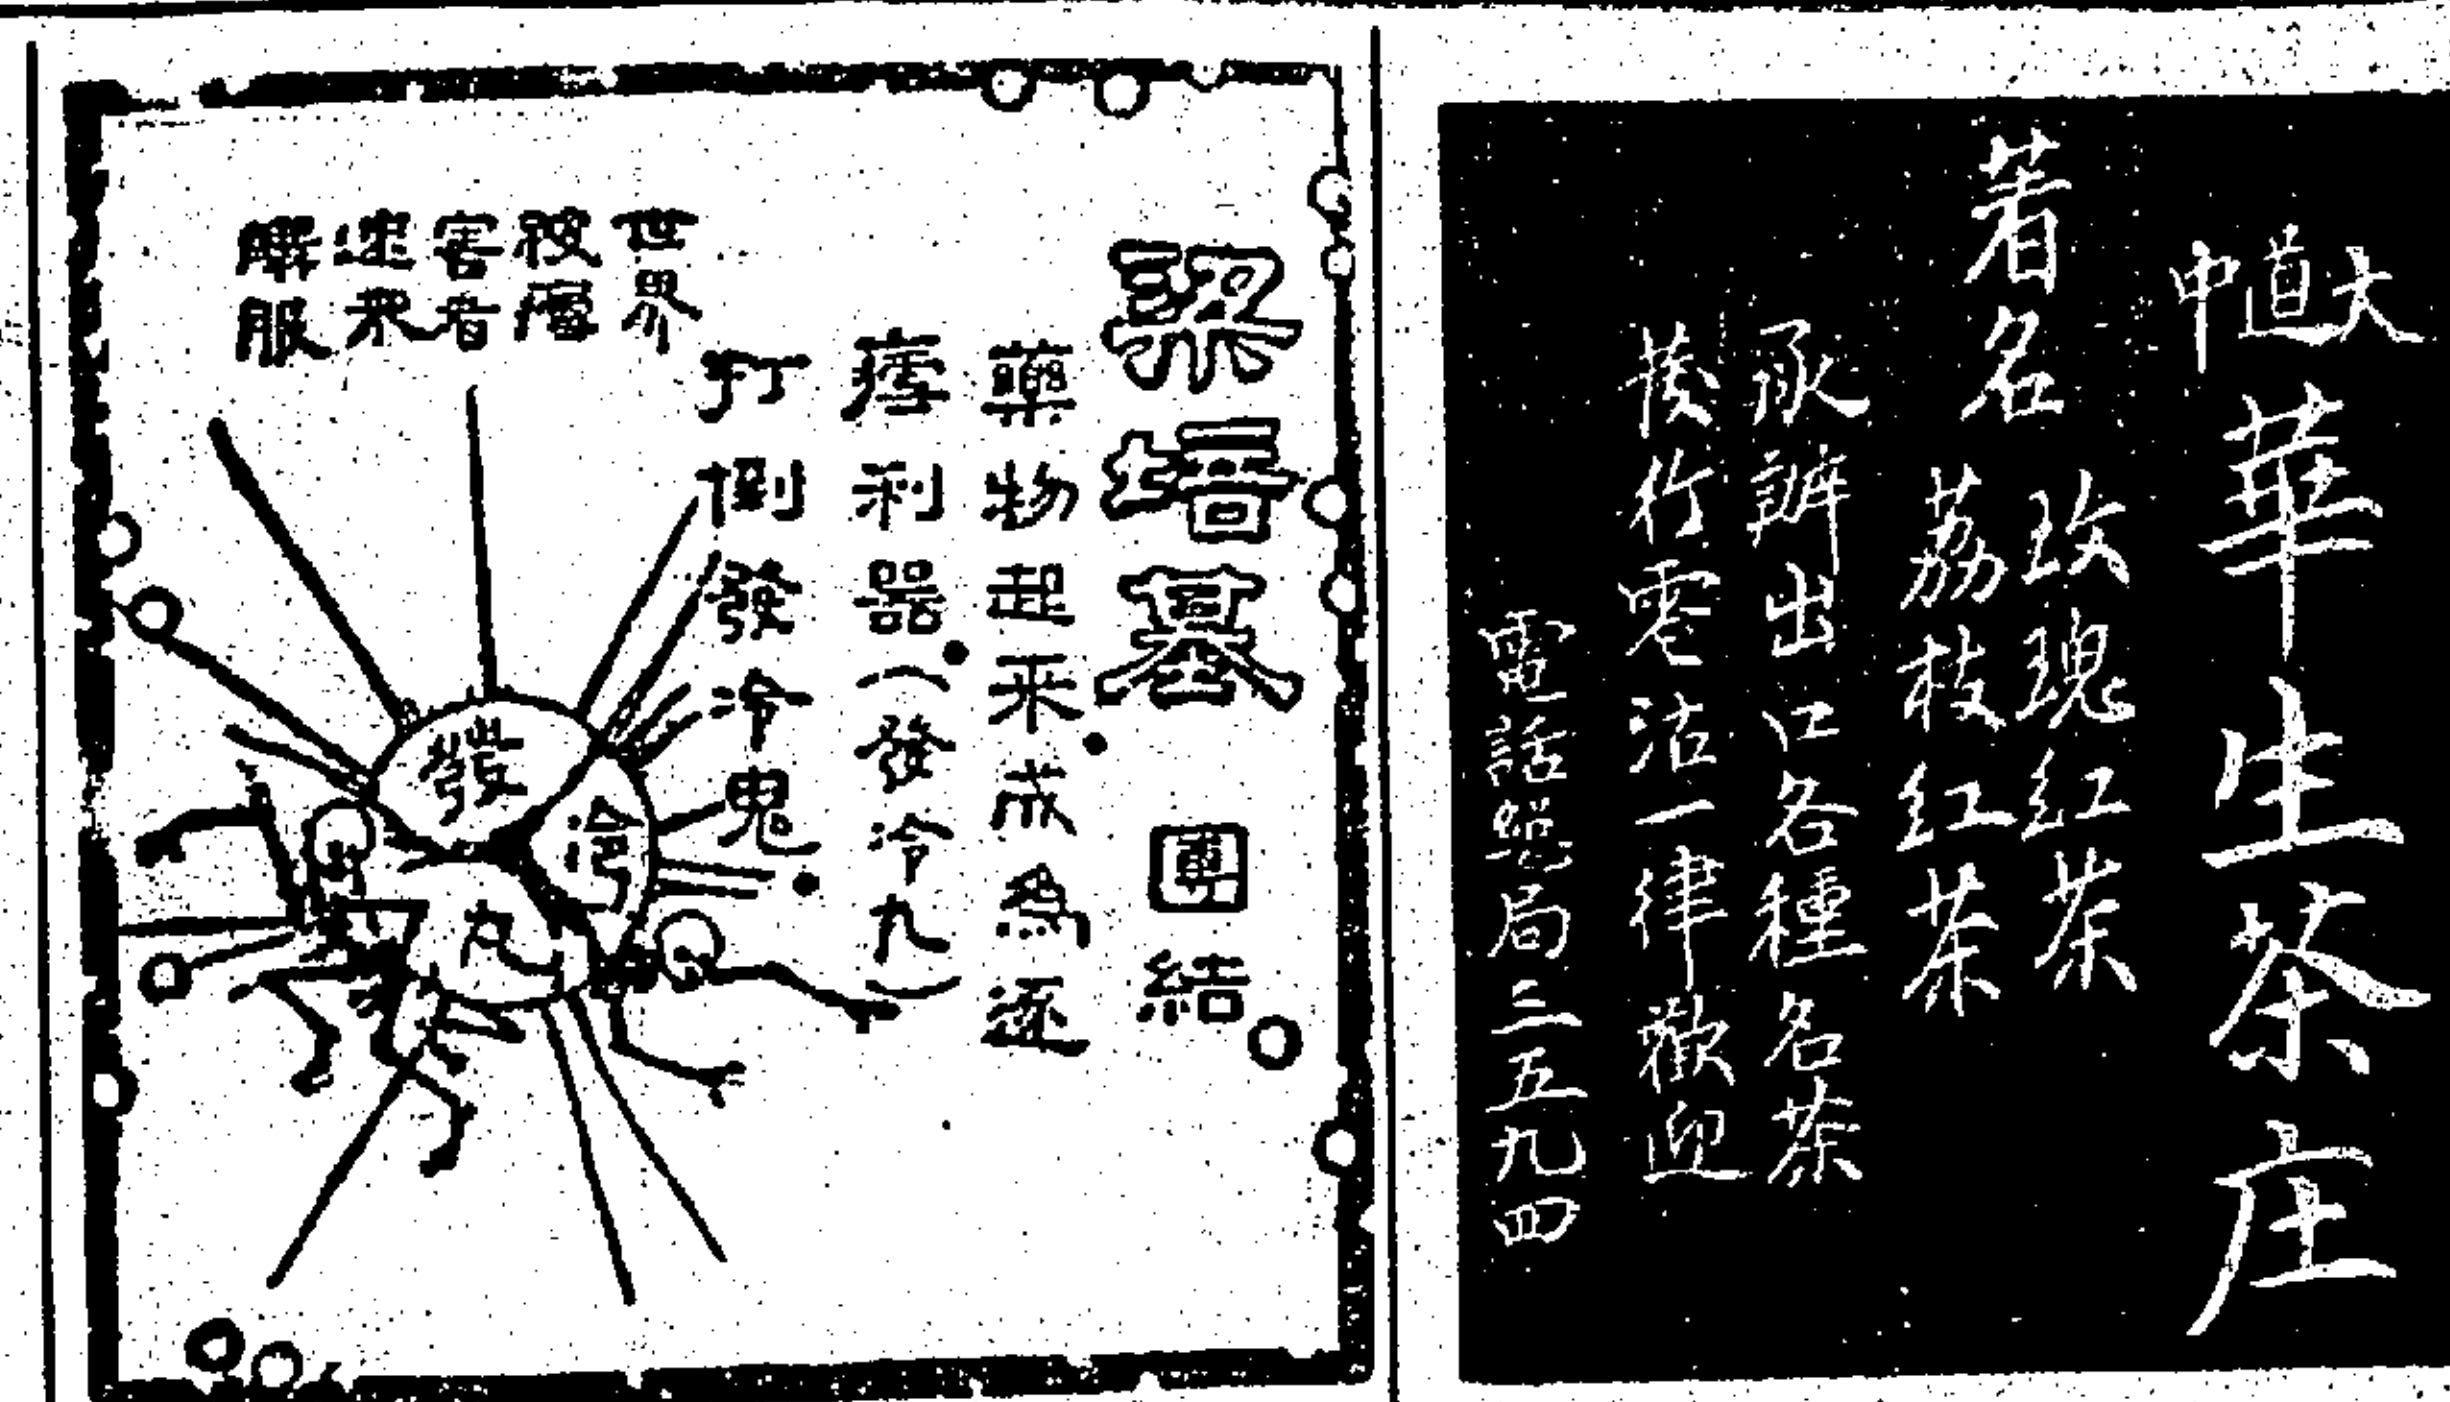 大道中
華生茶庄
著名
玫瑰紅茶
荔枝紅茶
承辦出口各種名茶
發行零沽一律歡迎
電話總局二五九四
梁培基 團結
藥物起來成為逐
瘧利器（發冷丸）
打倒發冷鬼
世界
被瘧
害者
速來
購服
發
冷
丸